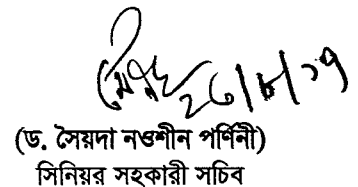 ২৩/৮/১৭
(ড. সৈয়দা নওশীন পর্ণিনী)
সিনিয়র সহকারী সচিব